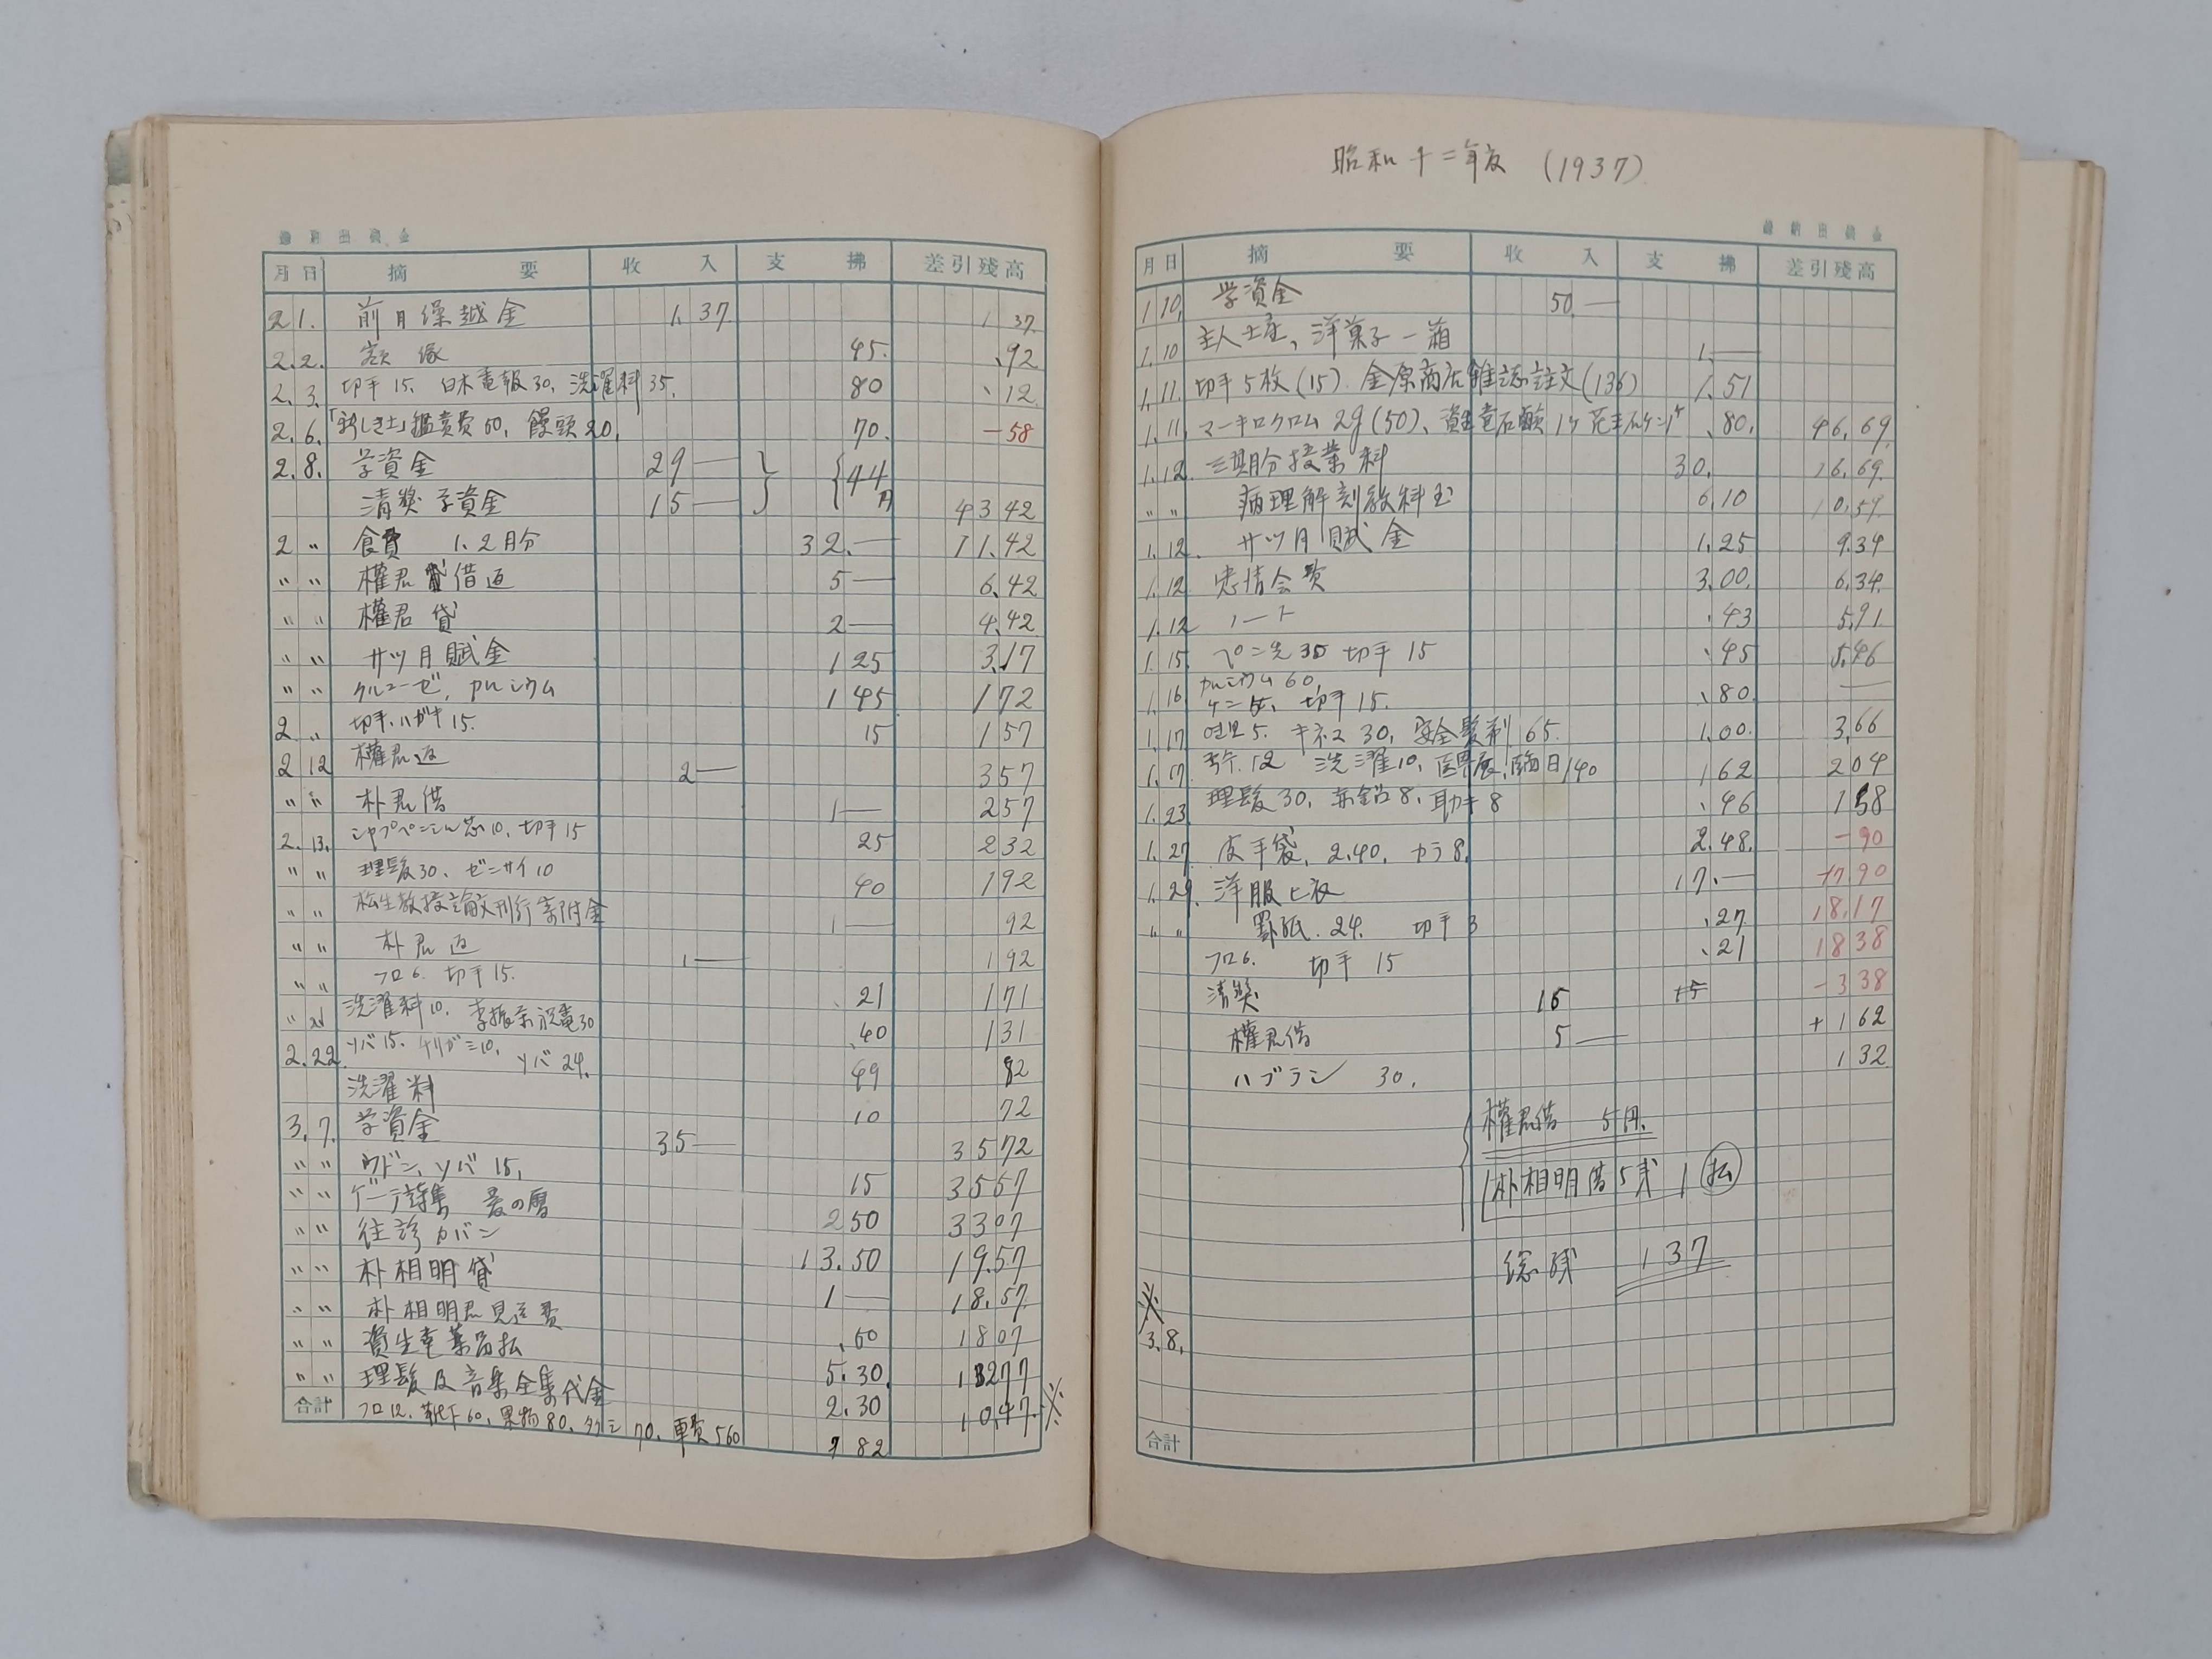 金銭出納簿
月 日 摘要 收入 支拂 差引残高
2 1. 前月繰越金 1.37 1 37.
2.2. 額縁 45. .92
2.3. 切手15. 日木電報30, 洗濯料35. 80 .12
2.6. 「新しき土」鑑賞費50, 饅頭20. 70. -58
2.8. 学資金 29— 44円
清奬学資金 15— 43 42
2 〃 食費 1.2月分 32.— 11.42
〃 〃 權君 借返 5— 6.42
〃 〃 權君 貸 2— 4.42
〃 〃 サツ月賦金 1 25 3.17
〃 〃 カルシウム 1 45 1 72
2 〃 切手ハガキ15. 15 1 57
2 12 權君返 2— 3 57
〃 〃 朴君借 1— 2 57
2.13. シャプペンシル芯10、切手15 25 2 32
〃 〃 理髪30、ゼンサイ10 40 1 92
〃 〃 松生教授論文刊行寄附金 1— 92
〃 〃 朴君返 1— 1 92
〃 〃 フロ6. 切手15. 21 1 71
〃 洗濯料10. 李振 祝電30 .40 1 31
2.22. ソバ15. チリガミ10, ソバ24. 49 82
洗濯料 10 72
3.7. 学資金 35— 35 72
〃 〃 ウドン、ソバ15, 15 35 57
〃 〃 ゲーテ詩集 愛の暦 2 50 33 07
〃 〃 往診カバン 13.50 19.57
〃 〃 朴相明貸 1— 18.57
〃 〃 朴相明君見送費 .50 18 07
〃 〃 資生堂薬品払 5.30. 1277
〃 〃 理髪及音集全集代金 2.30 10.47. ※
合計 フロ12. 靴下60, 果物80、タクシ70, 車賃560 7 82
昭和十二年度 (1937)
金銭出納簿
月 日 摘要 收入 支拂 差引残高
1 10. 学資金 50—
1.10 主人土産, 洋菓子一箱 1.—
1.11. 切手5枚(15). 金原商店雑誌註文(136) 1.51
1.11. マーキロクロム 2g(50)、資生堂石鹸1ケ .80. 46.69.
1.12. 三期分授業料 30. 16.69.
〃 〃 病理解剖教科書 6.10 10.59.
1.12. サツ月賦金 1.25 9.34
1.12 会費 3.00. 6.34.
1.12 ノート .43 5.91
1.15. ペン先30 切手15 .45 5.46
1.16 カルシウム60, 切手15. .80. —
1.17 5. キネマ30, 安全髪剃65. 1.00. 3.66
1.17. 12 洗濯10, 1 62 2 04
1.23. 理髪30, 赤鉛8, 8 .46 1 58
1.27. 皮手袋, 2.40, カラ8. 2.48. -90
1.29. 洋服上衣 17.— -17 90
〃 〃 罫紙. 24. 切手3 .27 18.17
フロ6. 切手15 .21 18 38
清奬 15 15 -3 38
權君借 5— +1 62
ハブラシ 30. 1 32
權君借 5円.
朴相明借 5残 1 払
総残 1 37
※
3.8.
合計